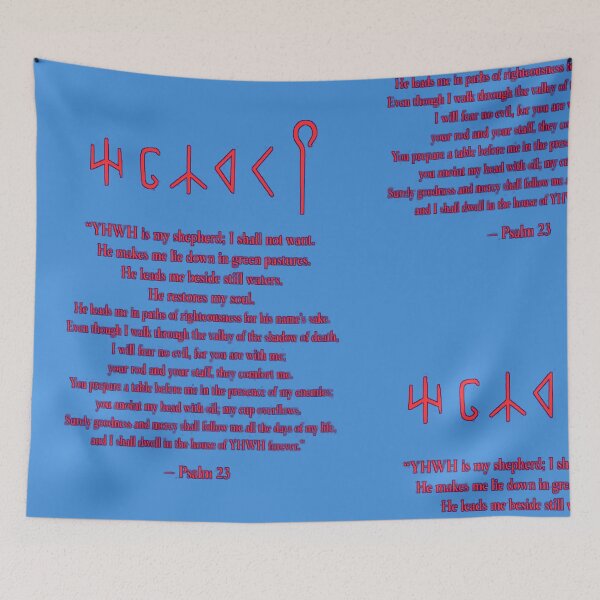 “YHWH is my shepherd; I shall not want.
He makes me lie down in green pastures.
He leads me beside still waters.
He restores my soul.
He leads me in paths of righteousness for his name's sake.
Even though I walk through the valley of the shadow of death,
I will fear no evil, for you are with me;
your rod and your staff, they comfort me.
You prepare a table before me in the presence of my enemies;
you anoint my head with oil; my cup overflows.
Surely goodness and mercy shall follow me all the days of my life,
and I shall dwell in the house of YHWH forever.”
— Psalm 23
He leads me in paths of righteousness
Even though I walk through the valley of
I will fear no evil, for you are
your rod and your staff, they
You prepare a table before me in the
you anoint my head with oil; my
Surely goodness and mercy shall follow me
and I shall dwell in the house of
— Psalm 23
“YHWH is my shepherd; I
He makes me lie down in
He leads me beside still